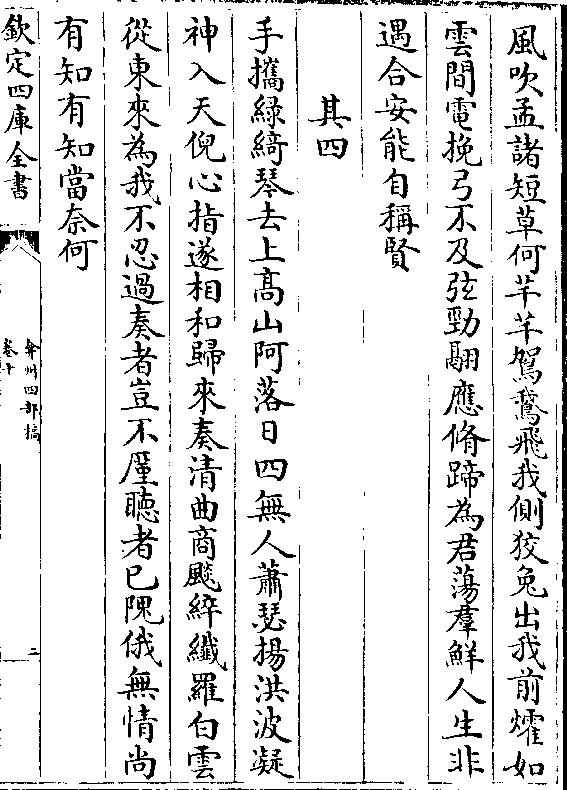 風吹孟諸短草何芊芊駕鵞飛我側狡兔出我前燿如
雲間電挽弓不及弦勁翮應脩蹄為君蕩羣鮮人生非
遇合安能自稱賢
其四
手攜緑綺琴去上髙山阿落日四無人蕭瑟揚洪波凝
神入天倪心指遂相和歸來奏清曲商飈綷纖羅白雲
從東來為我不忍過奏者豈不厪聽者已隗俄無情尚
有知有知當奈何
欽定四庫全書
弇州四部稿
卷十
二